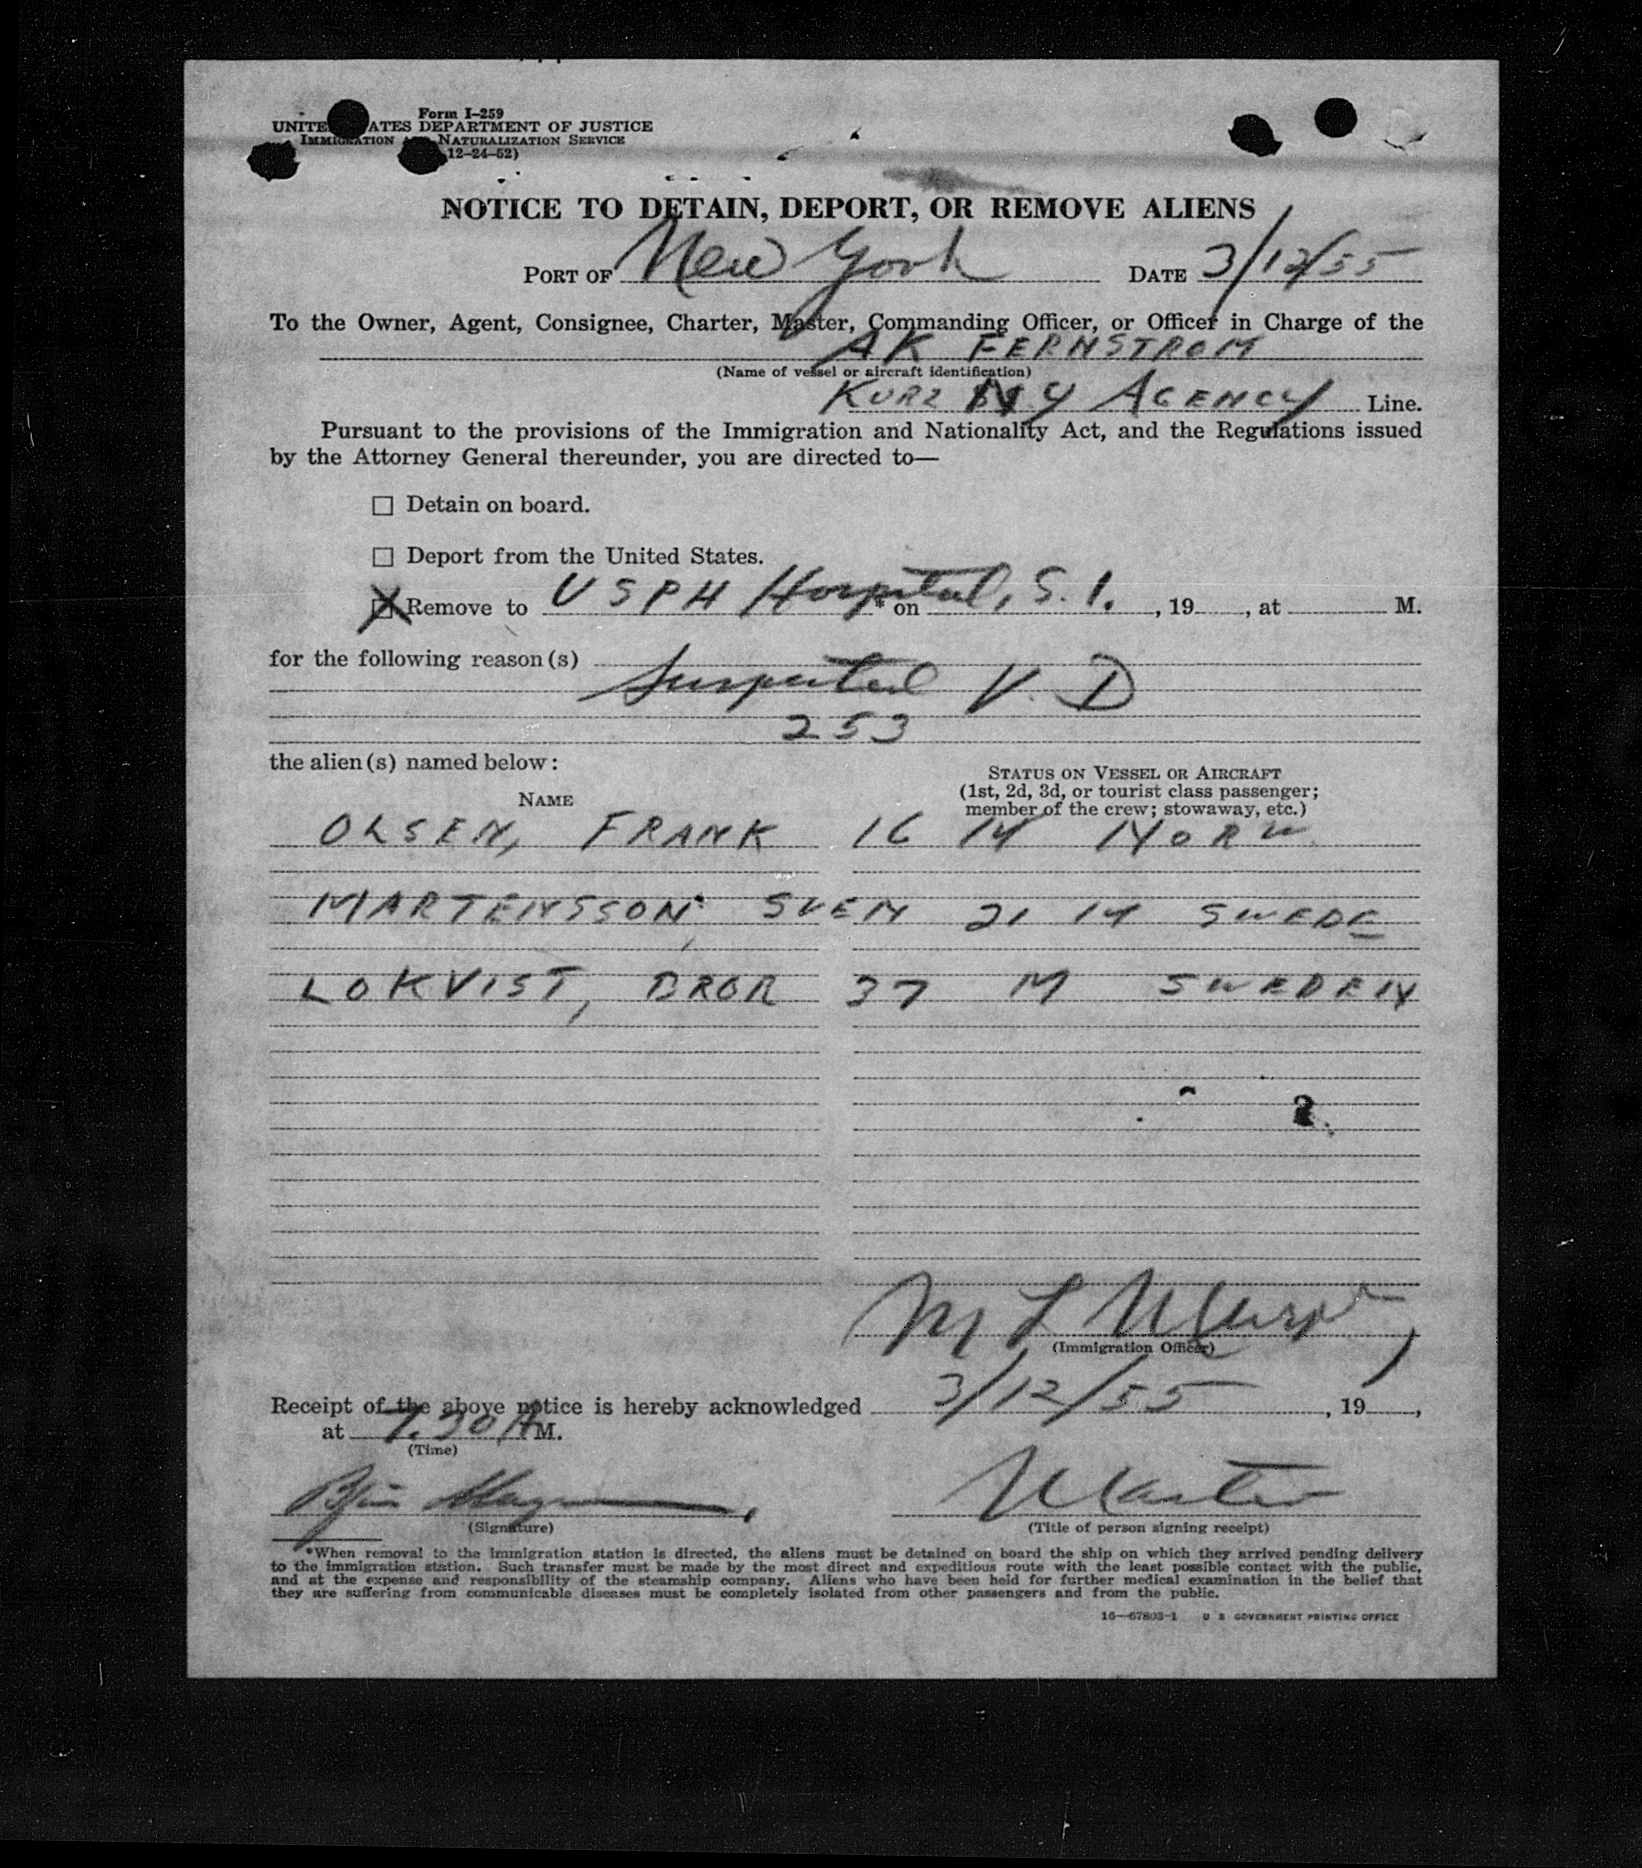 Form I-259
UNITE ATES DEPARTMENT OF JUSTICE
IMMIGRATION NATURALIZATION SERVICE
12-24-52)
NOTICE TO DETAIN, DEPORT, OR REMOVE ALIENS
PORT OF New York DATE 3/12/55
To the Owner, Agent, Consignee, Charter, Master, Commanding Officer, or Officer in Charge of the
AK FERNSTROM
(Name of vessel or aircraft identification)
KURZ NY AGENCY Line.
Pursuant to the provisions of the Immigration and Nationality Act, and the Regulations issued
by the Attorney General thereunder, you are directed to—
☐ Detain on board.
☐ Deport from the United States.
☒ Remove to USPH Hospital, S.I. * on , 19 , at M.
for the following reason(s)
Suspected V. D
253
the alien(s) named below:
STATUS ON VESSEL OR AIRCRAFT
(1st, 2d, 3d, or tourist class passenger;
member of the crew; stowaway, etc.)
NAME
OLSEN, FRANK 16 M NORW
MARTENSSON, SVEN 21 M SWEDE
LOKVIST, BROR 37 M SWEDEN
M L Murphy
(Immigration Officer)
Receipt of the above notice is hereby acknowledged 3/12/55 , 19 ,
at 7.30 A M.
(Time)
Master
(Signature) (Title of person signing receipt)
*When removal to the immigration station is directed, the aliens must be detained on board the ship on which they arrived pending delivery
to the immigration station. Such transfer must be made by the most direct and expeditious route with the least possible contact with the public,
and at the expense and responsibility of the steamship company. Aliens who have been held for further medical examination in the belief that
they are suffering from communicable diseases must be completely isolated from other passengers and from the public.
16—67803-1 U S GOVERNMENT PRINTING OFFICE